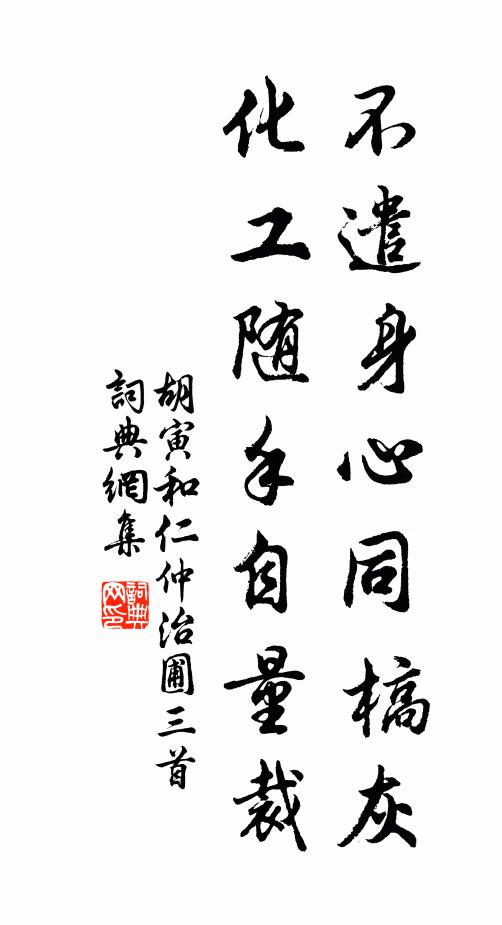 不遣身心同槁灰
化工随手自量裁
胡寅和仁仲治圃三首
詞典網集
詞典网印